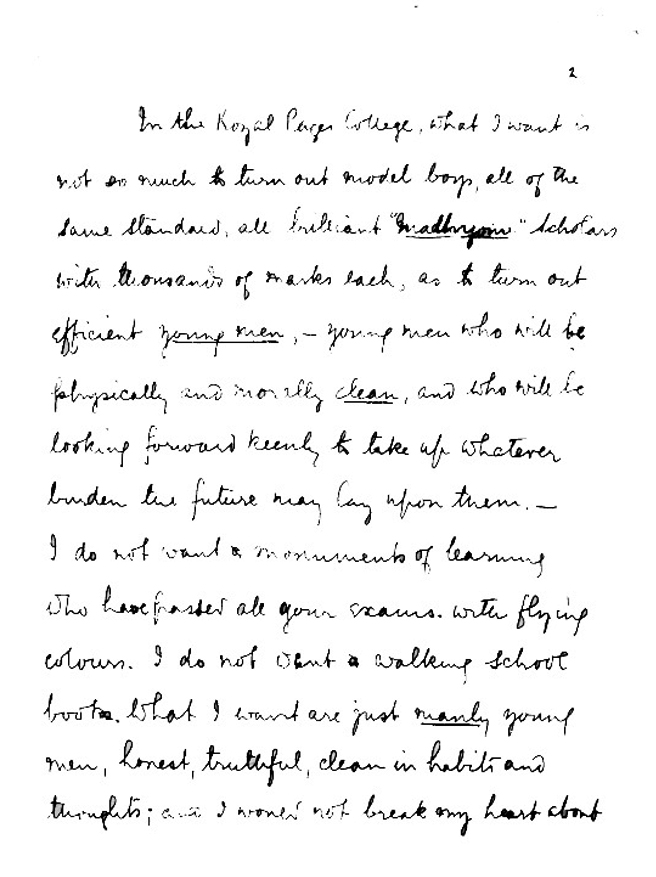 2
In the Royal Pages College, what I want is
not so much to turn out model boys, all of the
same standard, all brilliant "Madhyom" scholars
with thousands of marks each, as to turn out
efficient young men, – young men who will be
physically and morally clean, and who will be
looking forward keenly to take up whatever
burden the future may lay upon them. –
I do not want monuments of learning
who have passed all your exams. with flying
colours. I do not want walking school
books. What I want are just manly young
men, honest, truthful, clean in habits and
thoughts; and I would not break my heart about